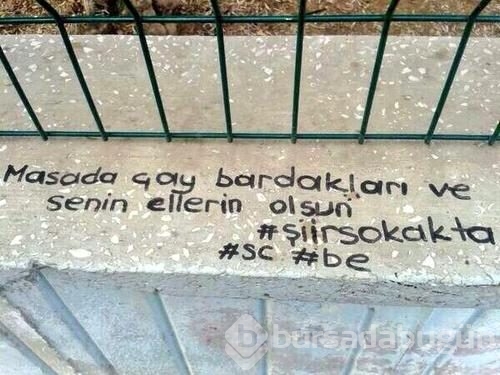 Masada çay bardakları ve
senin ellerin olsun
#şiirsokakta
#sc #be
bursadabugun